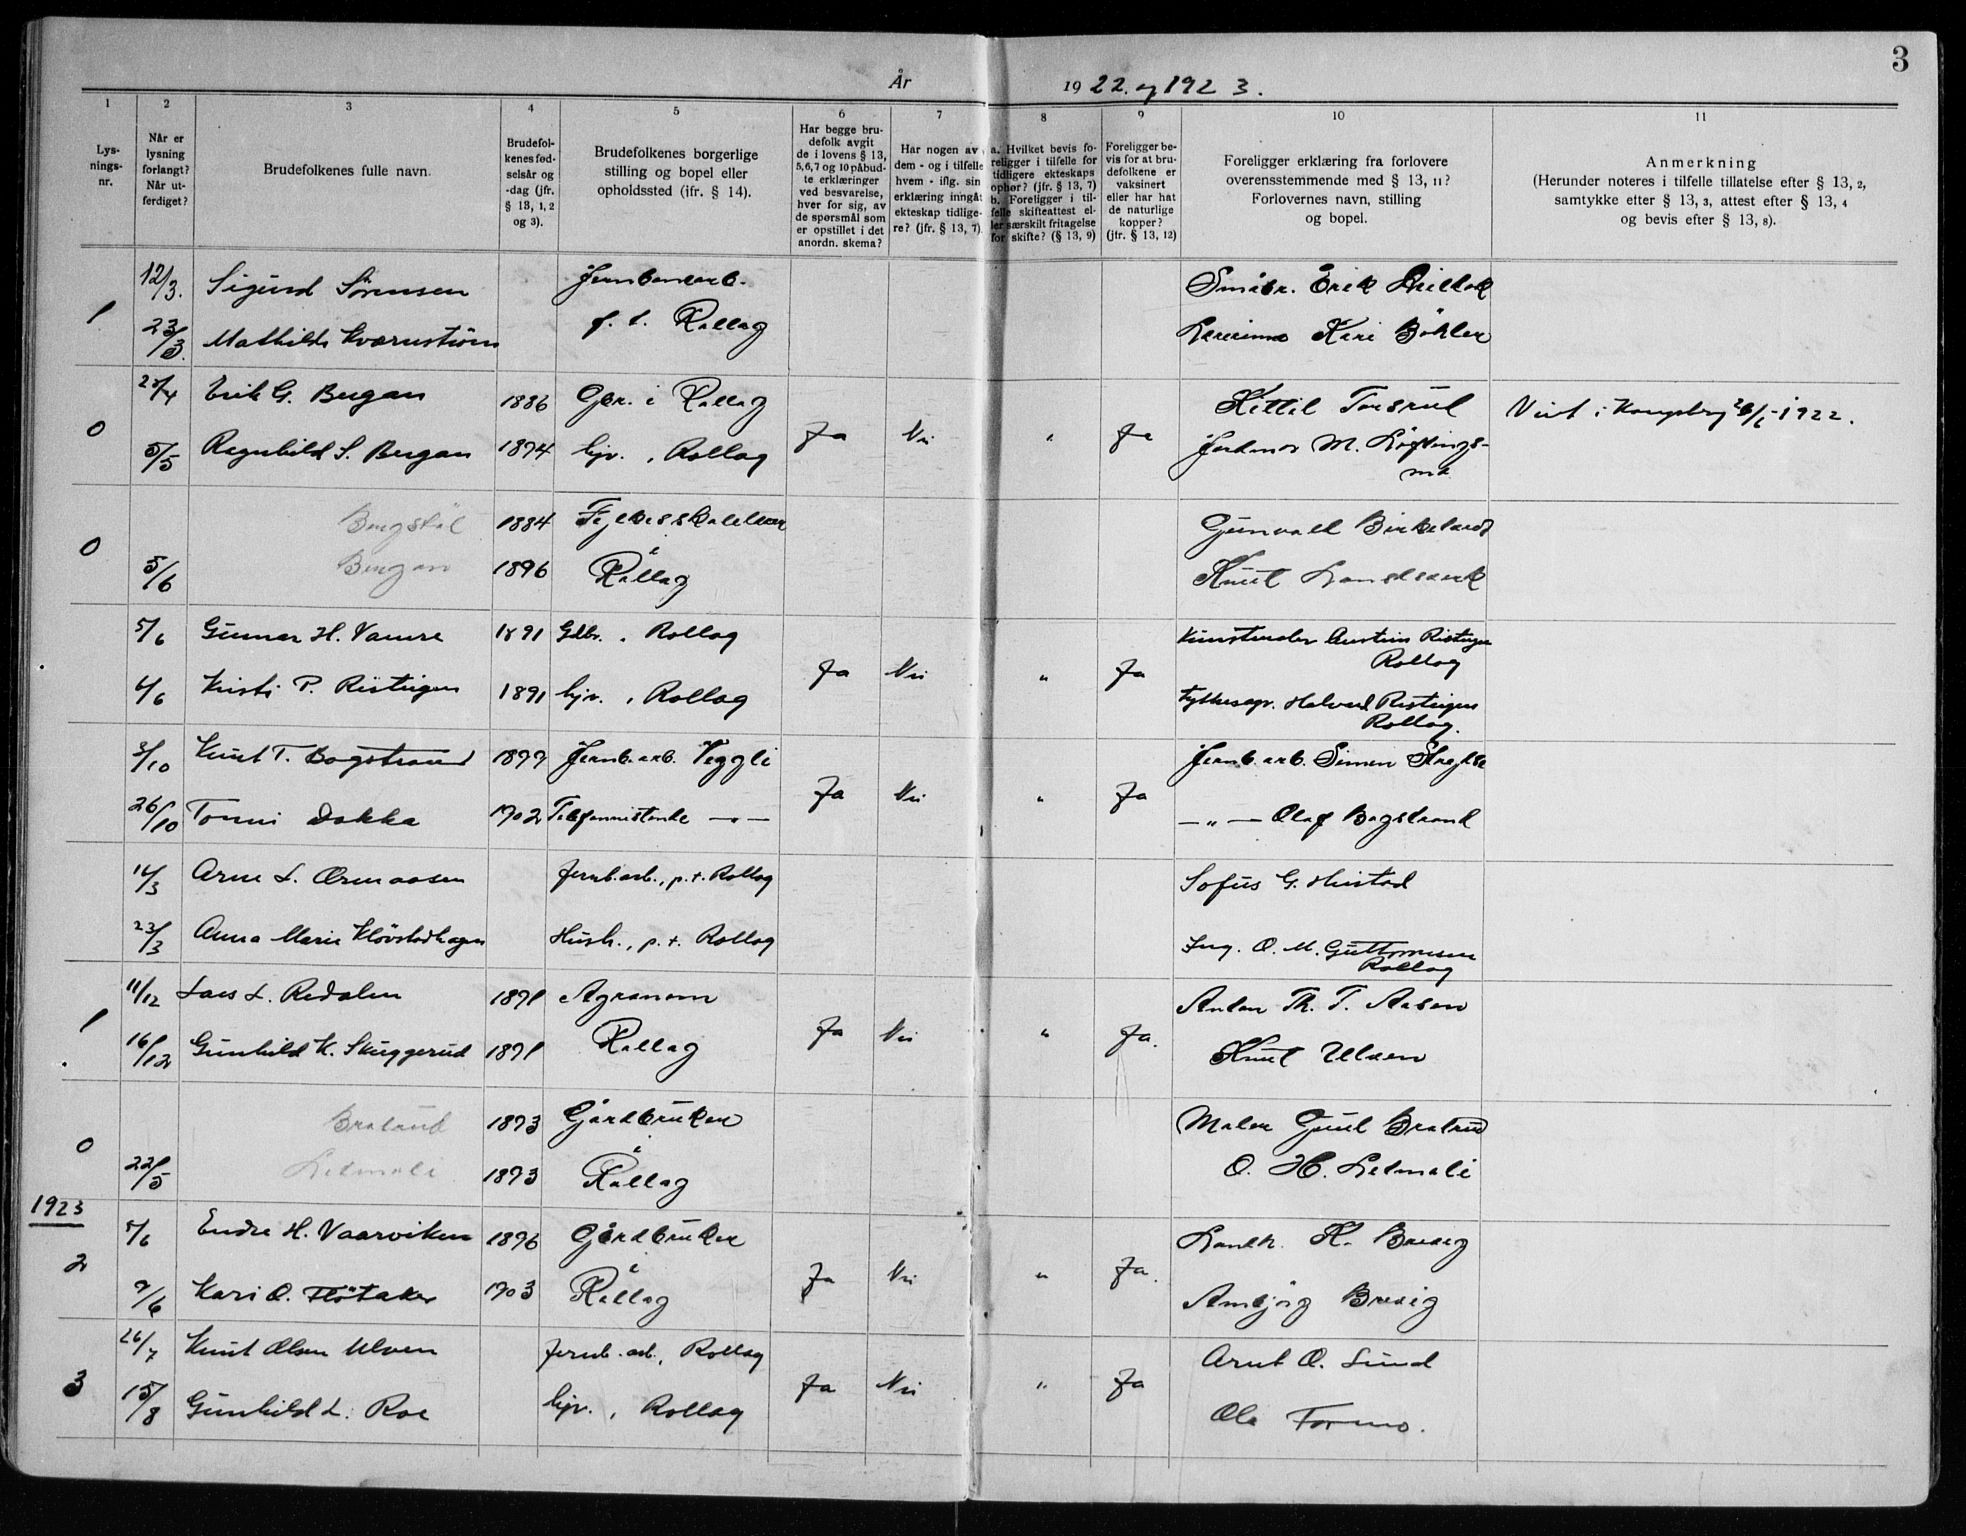 3
År 1922. og 1923.
1 2 3 4 5 6 7 8 9 10 11
Lys-
nings-
nr.
Når er
lysning
forlangt?
Når ut-
ferdiget?
Brudefolkenes fulle navn.
Brudefol-
kenes fød-
selsår og
-dag (jfr.
§ 13, 1, 2
og 3).
Brudefolkenes borgerlige
stilling og bopel eller
opholdssted (ifr. § 14).
Har begge bru-
defolk avgit
de i lovens § 13,
5, 6, 7 og 10 påbud-
te erklæringer
ved besvarelse,
hver for sig, av
de spørsmål som
er opstillet i det
anordn. skema?
Har nogen av
dem - og i tilfelle
hvem - iflg. sin
erklæring inngåt
ekteskap tidlige-
re? (jfr. § 13, 7).
a. Hvilket bevis fo-
religger i tilfelle for
tidligere ekteskaps
ophør? (jfr. § 13, 7)
b. Foreligger i til-
felle skifteattest el-
ler særskilt fritagelse
for skifte? (§ 13, 9)
Foreligger be-
vis for at bru-
defolkene er
vaksinert
eller har hat
de naturlige
kopper?
(jfr. § 13, 12)
Foreligger erklæring fra forlovere
overensstemmende med § 13, 11?
Forlovernes navn, stilling
og bopel.
Anmerkning
(Herunder noteres i tilfelle tillatelse efter § 13, 2,
samtykke efter § 13, 3, attest efter § 13, 4
og bevis efter § 13, 8).
12/3. Sigurd Sörensen Jernbanearb. Småbr. Erik
1
23/3. Mathilde Kvarnström p. t. Rollag Lærerinne Kari Böhler
25/4 Erik G. Bergan 1886 Gbr. i Rollag Kittil Torsrud Viet i Kongsberg 1922.
0 Ja Nei " Ja
5/5 Ragnhild S. Bergan 1894 hjv., Rollag Jordmor M. Löftings-
mo
Bergstöl 1884 Gunvald Birkeland
0
5/6 Bergan 1896 Rållag Knut Landsverk
5/6 Gunnar H. Vamre 1891 Gbr., Rollag Kunstmaler Austin Risteigen
Rollag
Ja Nei " Ja
6/6 Kristi P. Risteigen 1891 hjv., Rollag Halvard Risteigen
Rollag.
3/10 Knut T. Bogstrand 1899 Jernb.arb. Veggli Jernb.arb. Simen
Ja Nei " Ja
26/10 Tonni Dokka 1902 Telefonnistinde — " — — " — Olaf Bogstrand
14/3 Arne L. Ormaasen Jernb.arb., p. t. Rollag Sofus G. Hustad
23/3 Anna Marie Kløvstadhagen Hush., p. t. Rollag Ing. O. M. Guttormsen
Rollag
11/12 Lars L. Rodalen 1891 Agronom Anton Th. T. Aasen
1 Ja Nei " Ja.
16/12 Gunhild K. Skuggerud 1891 Rollag Knut Ulven
Bratrud 1893 Gårdbruker Maler Gunl Bratrud
0
22/5 Letmoli 1893 Rållag O. H. Letmoli
1923
5/6 Endre H. Vaarviken 1896 Gårdbruker Landh. H. Brevig
2 Ja Nei " Ja.
9/6 Kari O. Fløtaker 1903 Rållag Ambjørg Brevig
26/7 Knut Olsen Ulven Jernb.arb., Rollag Arnt O. Lund
3 Ja Nei " Ja
15/8 Gunhild L. Roe hjv., Rollag Ole Formo.